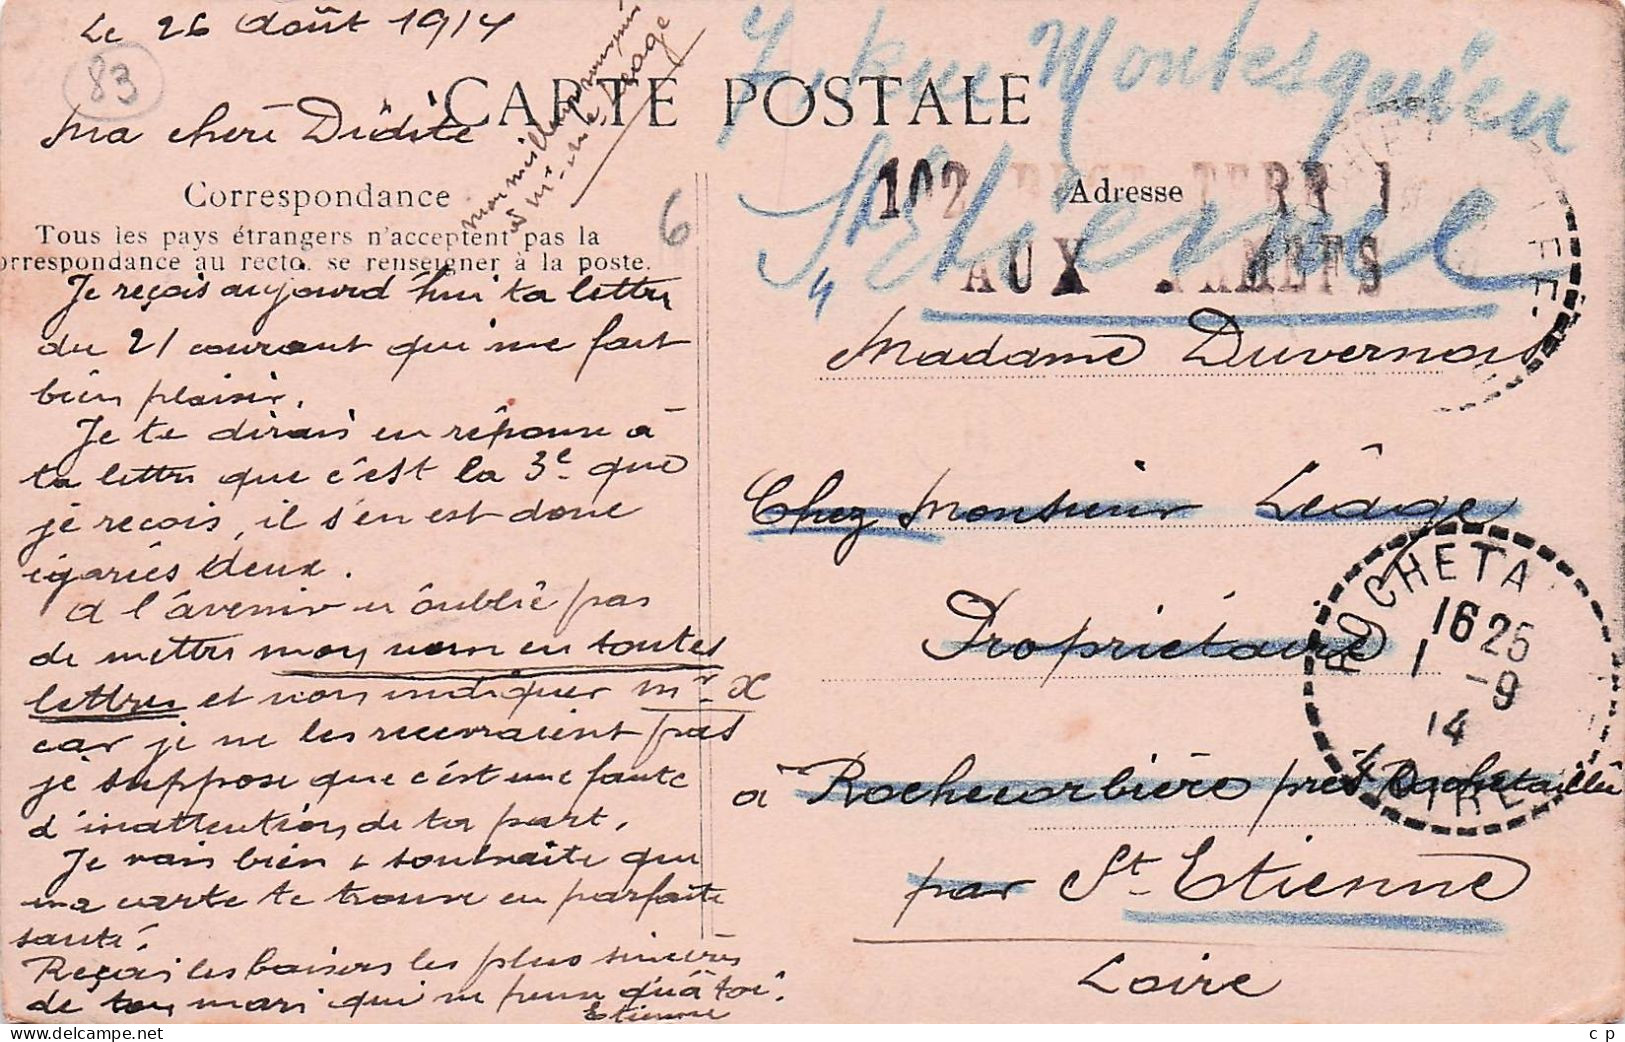 Le 26 Août 1914
83
Ma chère
CARTE POSTALE
Correspondance
Tous les pays étrangers n'acceptent pas la
orrespondance au recto. se renseigner à la poste.
6
Je reçois aujourd'hui ta lettre
du 21 courant qui me fait
bien plaisir.
Je te dirais en réponse à
ta lettre que c'est la 3e que
je reçois, il s'en est donc
égariés deux.
A l'avenir n'oublie pas
de mettre mon nom en toutes
lettres et non indiquer Mr X
car je ne les recevraient pas
je suppose que c'est une faute
d'inattention de ta part.
Je vais bien & souhaite que
ma carte te trouve en parfaite
santé.
Reçois les baisers les plus sincères
de ton mari qui ne pense qu'à toi.
Etienne
mon meilleur
à Mr & Mme Léage
7 rue Montesquieu
St Etienne
102 TERR
AUX ARMEES
Adresse
Madame Duvernois
Chez Monsieur Léage
Propriétaire
à Rochecorbière près Rochetaillée
par St-Etienne
Loire
ROCHETA
16 25
1 -9
14
LOIRE
c p